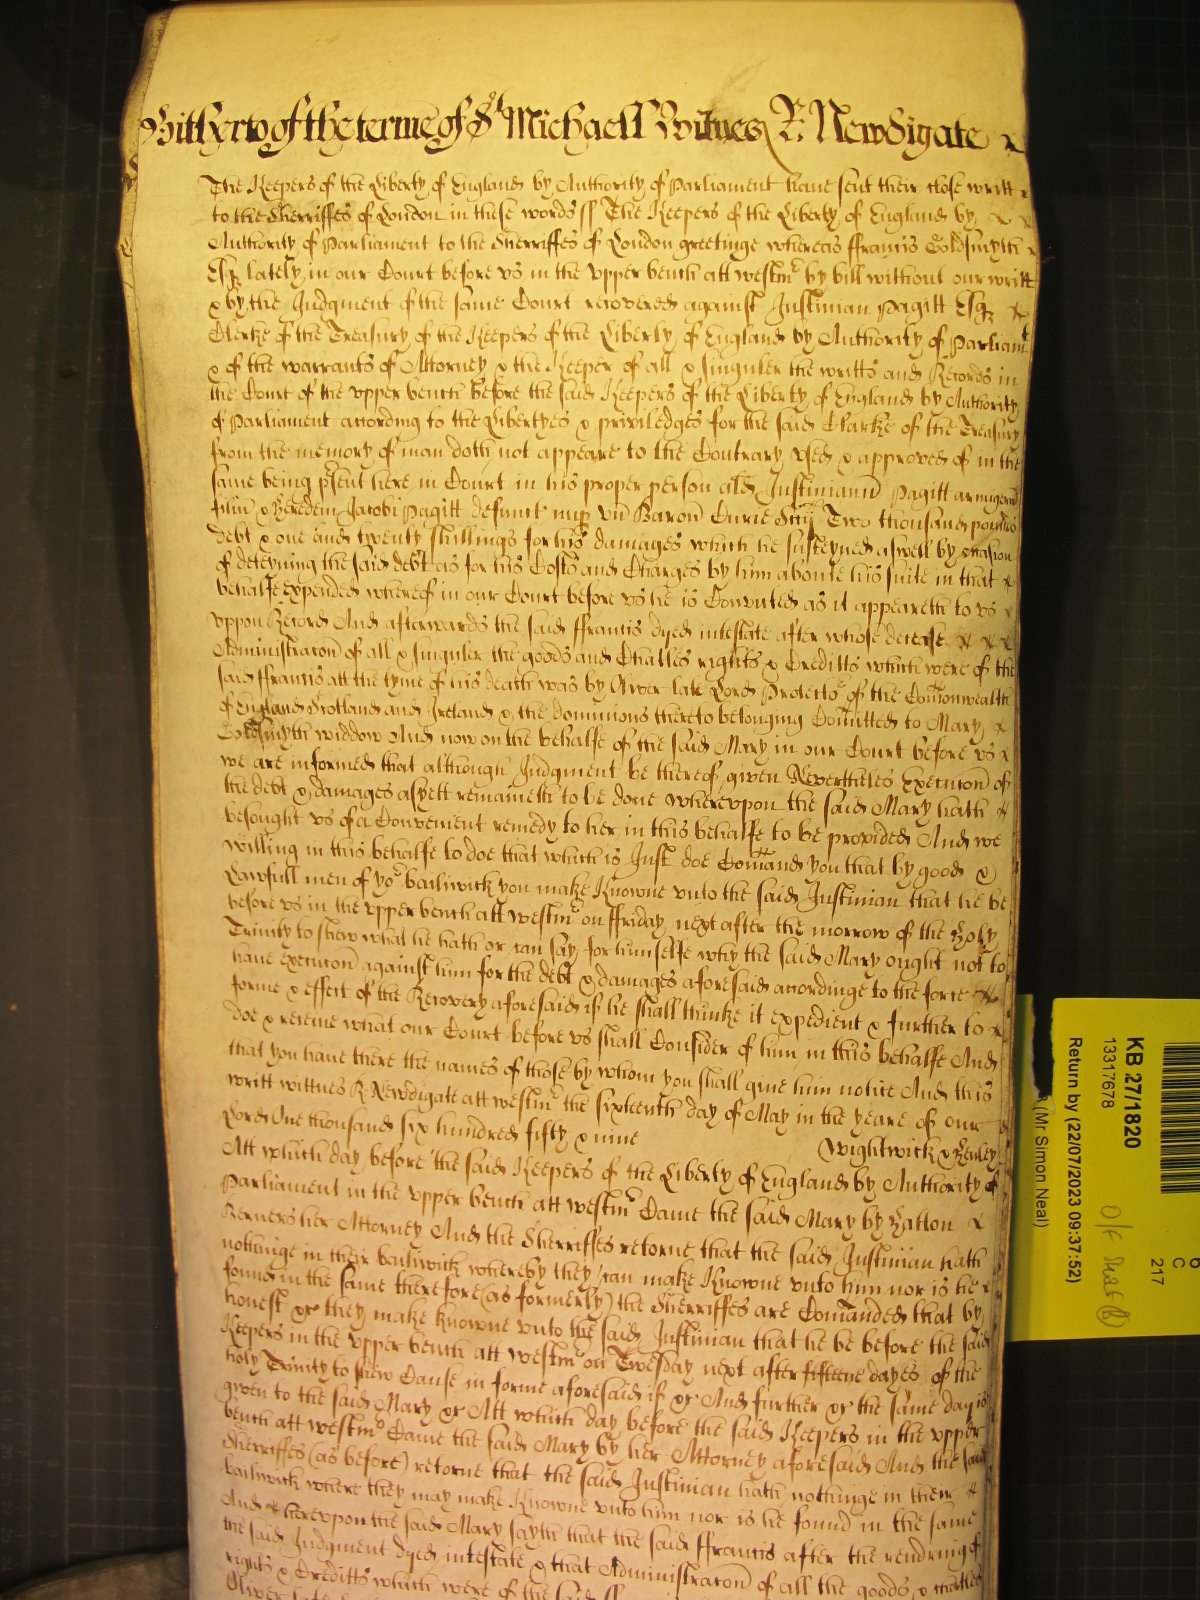 Hitherto of the terme of St Michaell Witnes R: Newdigate
The Keepers of the Liberty of England by Authority of Parliament have sent their close writt
to the Sherriffes of London in these words ss The Keepers of the Liberty of England by
Authority of Parliament to the Sherriffes of London greetinge whereas ffrancis Goldsmyth
Esqr lately in our Court before us in the upper bench att westmr by bill without our writt
& by the Judgment of the same Court recovered against Justinian Pagitt Esqr
Clerke of the Treasury of the Keepers of the Liberty of England by Authority of Parliamt
& of the warrants of Attorney & the Keeper of all & singuler the writts and Records in
the Court of the upper bench before the said Keepers of the Liberty of England by Authority
of Parliament according to the Libertyes & priviledges for the said Clarke of the Treasury
from the memory of man doth not appeare to the Contrary used & approved of in the
same being psent here in Court in his proper person als Justinianu Pagitt armigeru
filiu & heredem Jacobi Pagitt defunct nup un Baron Curie Sccij Two thousand pounds
debt & one and twenty shillings for his damages which he susteyned aswell by occasion
of deteyning the said debt as for his Costs and Charges by him aboute his suite in that
behalfe expended whereof in our Court before us he is Convicted as it appeareth to us
uppon Record And afterwards the said ffrancis dyed intestate after whose decease
Administracon of all & singuler the goods and Chattles rights & Creditts which were of the
said ffrancis att the tyme of his death was by Oliver late Lord Protector of the Comonwealth
of England Scotland and Ireland & the dominions thereto belonging Comitted to Mary
Goldsmyth widdow And now on the behalfe of the said Mary in our Court before us
we are informed that although Judgment be thereof given Nevertheles Execucon of
the debt & damages as yett remaineth to be done whereupon the said Mary hath
besought us of a Convenient remedy to her in this behalfe to be provided And we
willing in this behalfe to doe that which is Just doe Comand you that by good &
Lawfull men of yor bailiwick you make Knowne unto the said Justinian that he be
before us in the upper bench att westmr on ffriday next after the morrow of the Holy
Trinity to shew what he hath or can say for himselfe why the said Mary ought not to
have execucon against him for the debt & damages aforesaid accordinge to the force
forme & effect of the Recovery aforesaid if he shall thinke it expedient & further to
doe & receive what our Court before us shall Consider of him in this behalfe And
that you have there the names of those by whom you shall give him notice And this
writt wittnes R Newdigate att westmr the sixteenth day of May in the yeare of our
Lord One thousand six hundred fifty & nine Wightwick & Henley
Att which day before the said Keepers of the Liberty of England by Authority of
Parliament in the upper bench att westmr Came the said Mary by Hatton
Berners her Attorney And the Sherriffes retorne that the said Justinian hath
nothinge in their bailiwick whereby they can make Knowne unto him nor is he
found in the same therefore (as formerly) the Sherriffes are Comanded that by
honest &c they make knowne unto the said Justinian that he be before the said
Keepers in the upper bench att westmr on Twesday next after fifteene dayes of the
holy Trinity to shew Cause in forme aforesaid if &c And further &c the same day is
given to the said Mary &c Att which day before the said Keepers in the upper
bench att westmr Came the said Mary by her Attorney aforesaid And the said
Sherriffes (as before) retorne that the said Justinian hath nothinge in their
bailiwick where they may make Knowne unto him nor is he found in the same
And hereupon the said Mary sayth that the said ffrancis after the rendring of
the said Judgment dyed intestate & that Administracon of all the goods & chattles
rights & Creditts which were of the said
KB 27/1820
13317678
Return by (22/07/2023 09:37:52)
(Mr Simon Neal)
C
217